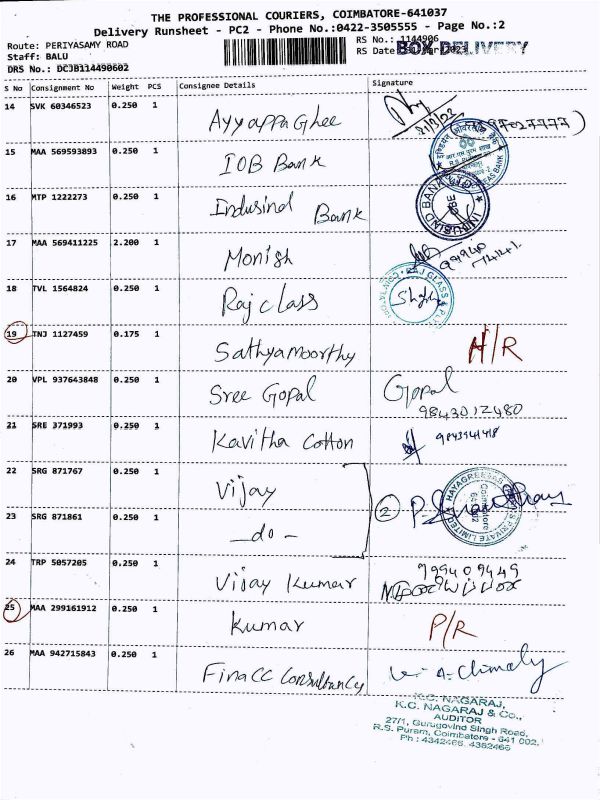 THE PROFESSIONAL COURIERS, COIMBATORE-641037
Delivery Runsheet - PC2 - Phone No.:0422-3505555 - Page No.:2
Route: PERIYASAMY ROAD
RS No.: 1144906
Staff: BALU
RS Date
BOX DELIVERY
DRS No.: DCJB114490602
S No Consignment No Weight PCS Consignee Details Signature
14 SVK 60346523 0.250 1 Ayyappa Ghee
15 MAA 569593893 0.250 1 IOB Bank
16 MTP 1222273 0.250 1 Indusind Bank
INDUSIND BANK LTD
CBE
17 MAA 569411225 2.200 1 Monish 99940
74141
18 TVL 1564824 0.250 1 Raj class
RAJ GLASS & PLY
19 TNJ 1127459 0.175 1 Sathyamoorthy H/R
20 VPL 937643848 0.250 1 Sree Gopal Gopal
9843012480
21 SRE 371993 0.250 1 Kavitha Cotton 9843941418
22 SRG 871767 0.250 1 Vijay
2
Coimbatore
PRIVATE LIMITED
23 SRG 871861 0.250 1 -do-
24 TRP 5057205 0.250 1 Vijay Kumar 999409449
25 MAA 299161912 0.250 1 Kumar P/R
26 MAA 942715843 0.250 1 Finacc Consultancy
K.C. NAGARAJ,
K.C. NAGARAJ & Co.,
AUDITOR
27/1, Gurugovind Singh Road,
R.S. Puram, Coimbatore - 641 002.
Ph : 4342466, 4382466